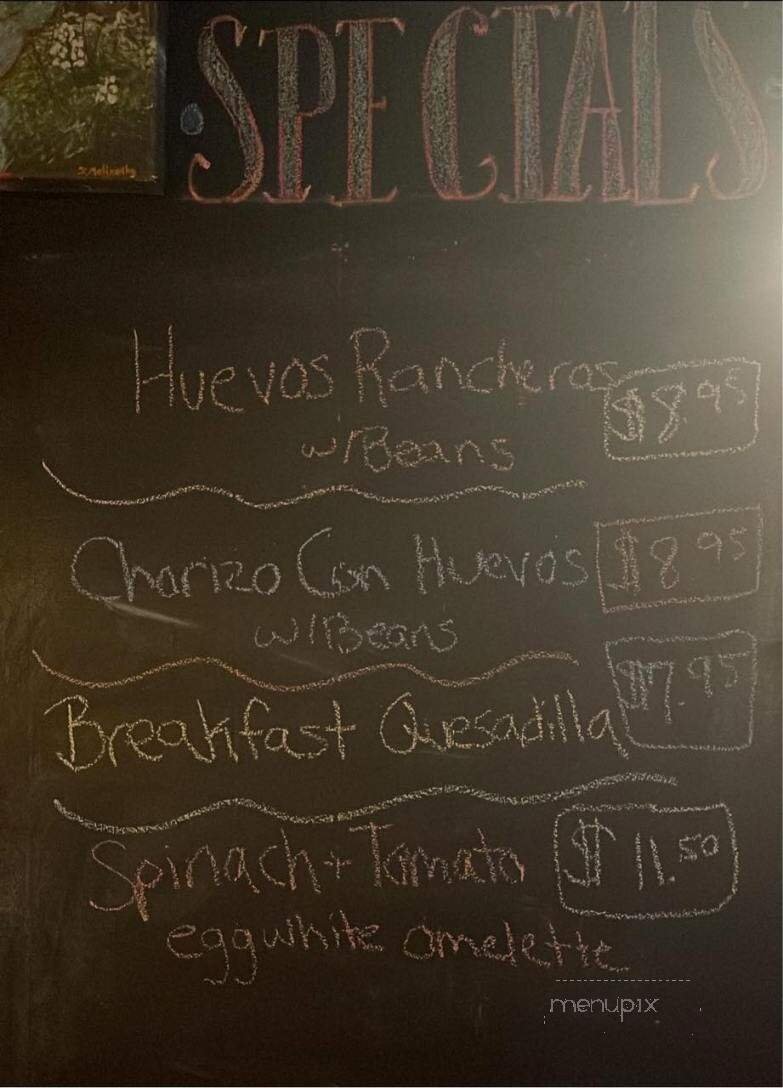 SPECIALS
Huevos Rancheros $8.95
w/Beans
Chorizo Con Huevos $8.95
w/Beans
Breakfast Quesadilla $7.95
Spinach + Tomato $11.50
eggwhite omelette
menupix